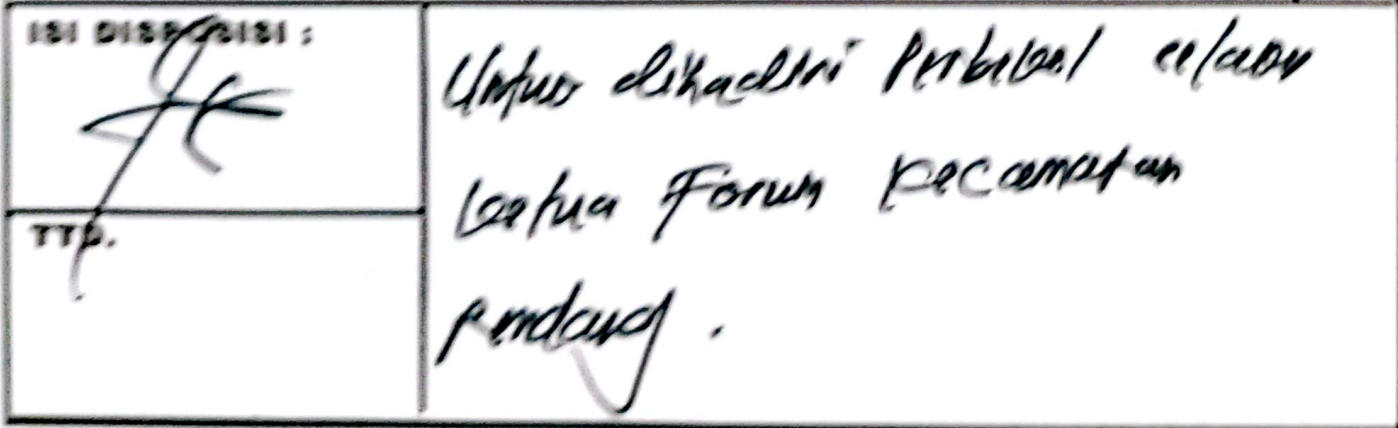 ISI DISPOSISI :
Untuk dihadiri Perbekel selaku
ketua Forum Kecamatan
TTD.